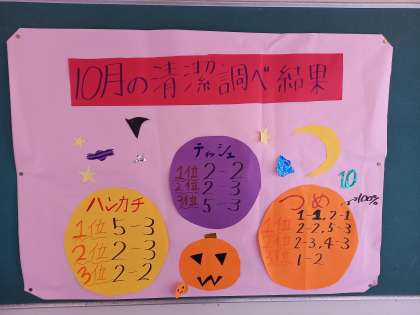 10月の清潔調べ結果
ティッシュ
1位 2-2
2位 2-3
3位 5-3
ハンカチ
1位 5-3
2位 2-3
3位 2-2
つめ
10
100%
1-1, 2-1
2-2, 5-3
2-3, 4-3
1-2